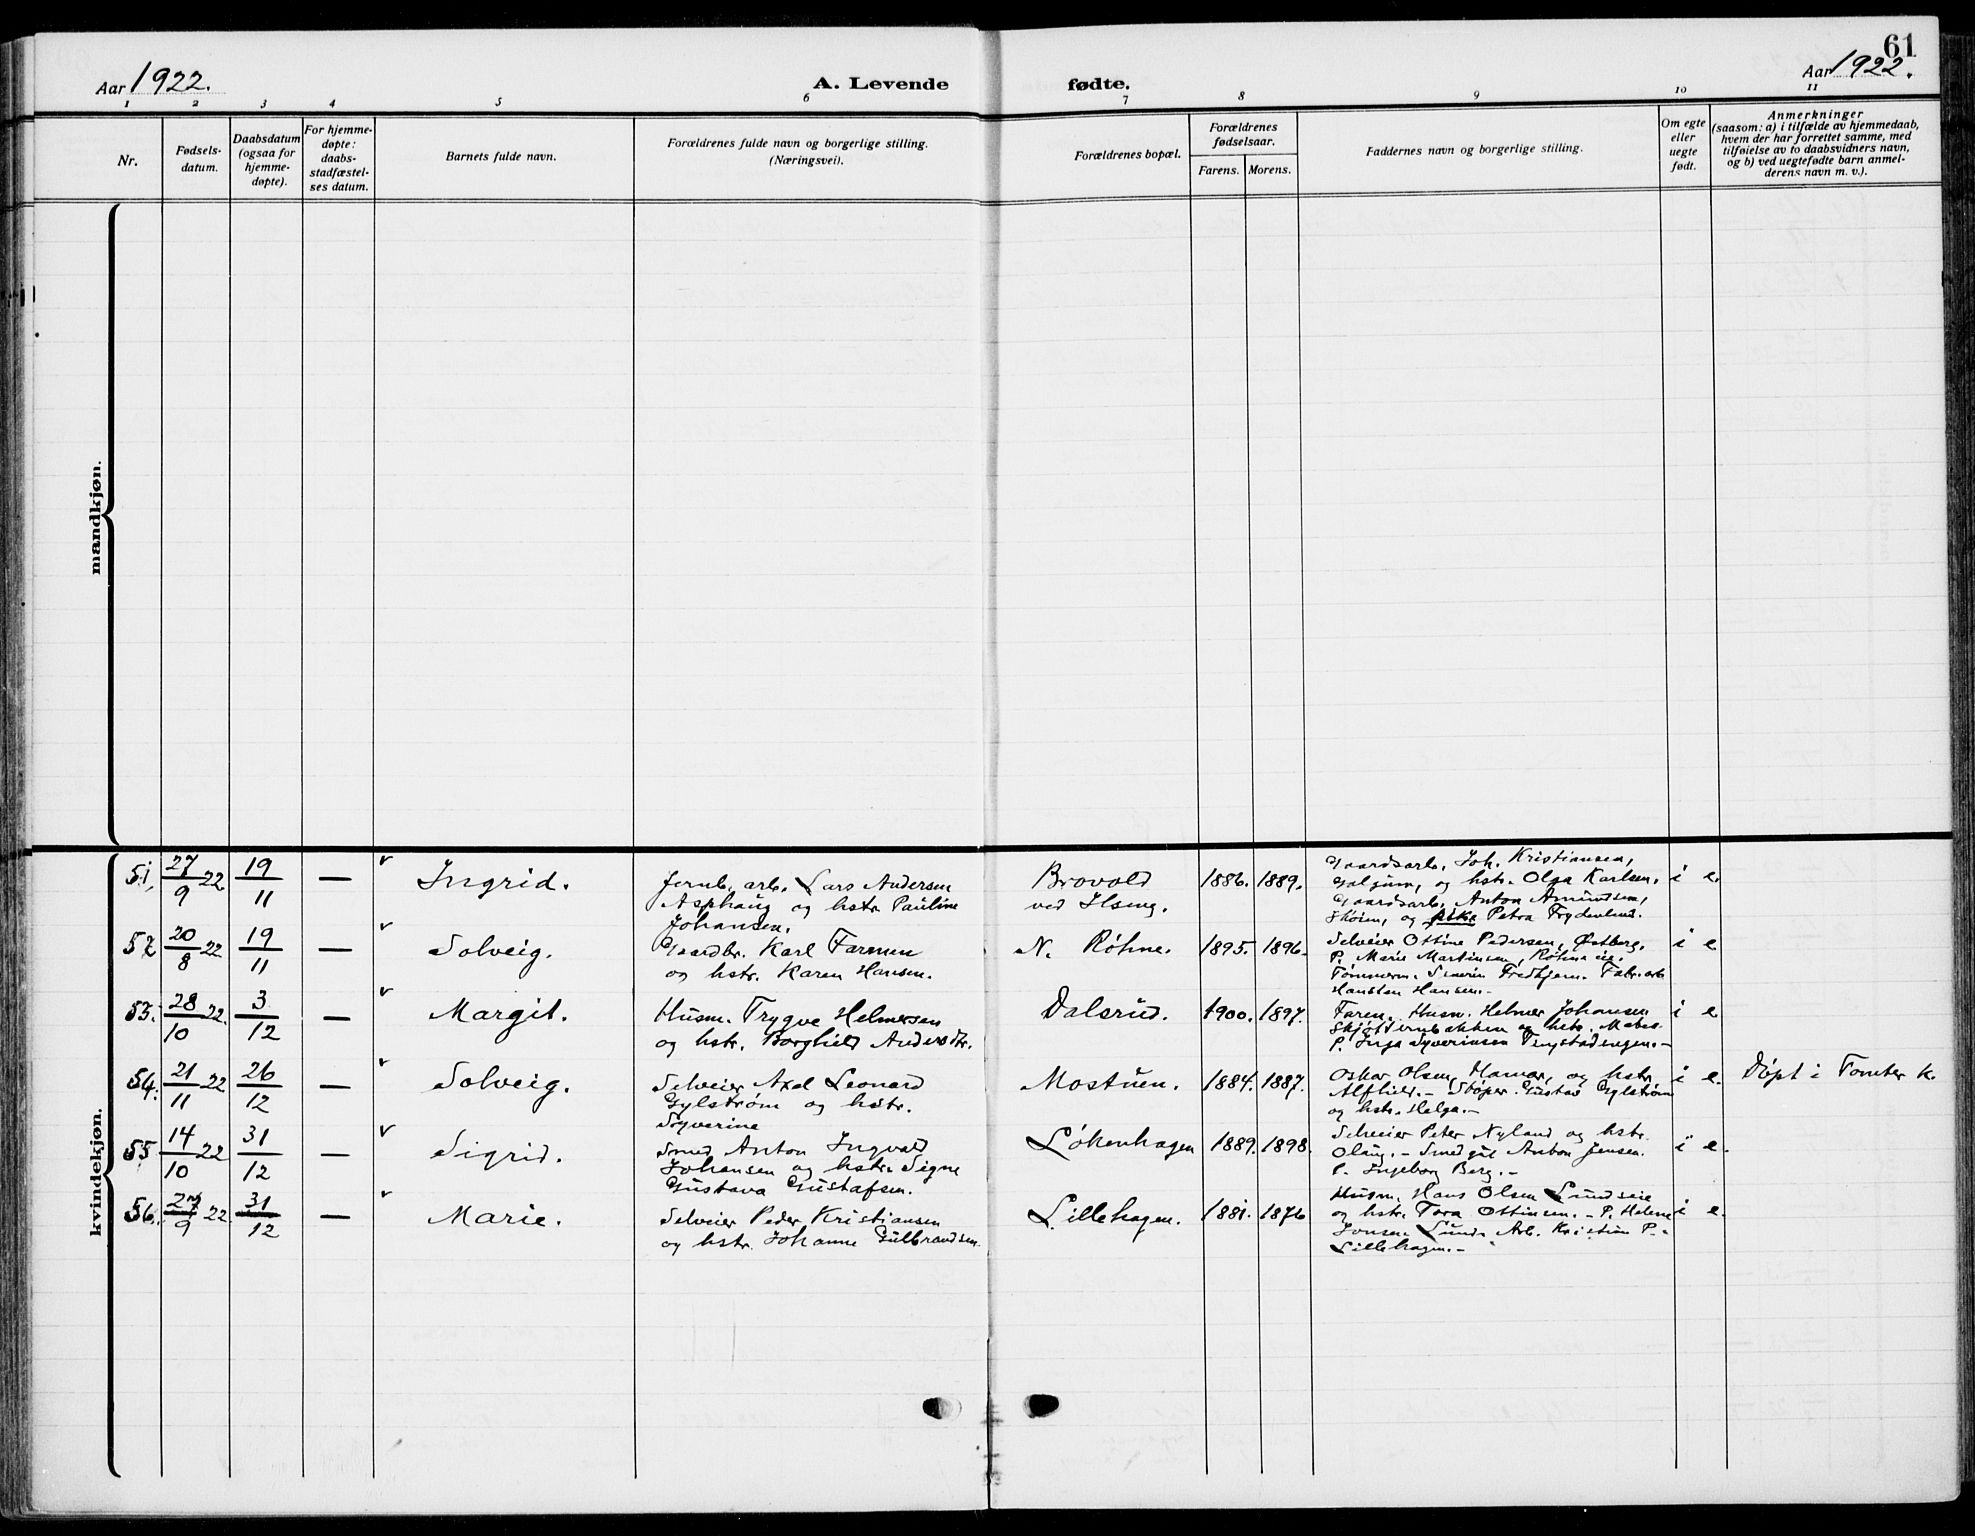 61
Aar 1922.
A. Levende fødte.
Aar 1922.
1 2 3 4 5 6 7 8 9 10 11
Nr.
Fødsels-
datum.
Daabsdatum
(ogsaa for
hjemme-
døpte).
For hjemme-
døpte:
daabs-
stadfæstel-
ses datum.
Barnets fulde navn.
Forældrenes fulde navn og borgerlige stilling.
(Næringsvei).
Forældrenes bopæl.
Forældrenes
fødselsaar.
Farens. Morens.
Faddernes navn og borgerlige stilling.
Om egte
eller
uegte
født.
Anmerkninger
(saasom: a) i tilfælde av hjemmedaab,
hvem der har forrettet samme, med
tilføielse av to daabsvidners navn,
og b) ved uegtefødte barn anmel-
derens navn m. v.).
mandkjøn.
kvindekjøn.
51, 27/9 22 19/11 — Ingrid.
Jernb. arb. Lars Andersen
Asphaug og hstr Pauline
Johansen.
Brovold
ved Ilseng.
1886. 1889.
Gaardsarb. Joh. Kristiansen,
og hstr. Olga Karlsen.
Gaardsarb. Anton Amundsen,
og Petra Frydenlund.
i e.
52 20/8 22 19/11 — Solveig.
Gaardbr. Karl Farmen
og hstr. Karen Hansen.
N. Røhne.
1895. 1896.
Selveier Ottine Pedersen, Østberg.
P. Marie Martinsen, Røhne
Tømmerm. Fabr. arb.
Hansten Hansen.-
i e
53. 28/10 22. 3/12 — Margit.
Husm. Trygve Helmersen
og hstr. Borghild Andersdtr.
Dalsrud.
1900. 1897.
Faren. Husm. Helmer Johansen
og hstr.
P. Inga Syverinsen
i e
54. 21/11 22 26/12 — Solveig.
Selveier Axel Leonard
Gylstrøm og hstr.
Syverine
Mostuen.
1884. 1887.
Oskar Olsen, Hamar, og hstr
Alfhild.- Støper Gustav Gylstrøm
og hstr. Helga.-
i e.
Døpt i Tomter k.
55 14/10 22 31/12 — Sigrid.
Smed Anton Ingvald
Johansen og hstr. Signe
Gustava Gustafsen.
Løkenhagen
1889. 1898.
Selveier Peter Nyland og hstr.
Olaug.- Anton Jensen.
P. Ingeborg Berg.-
i e.
56. 27/9 22. 31/12 — Marie.
Selveier Peder Kristiansen
og hstr. Johanne Gulbrandsen.
Lillehagen.
1881. 1876
Husm. Hans Olsen
og hstr. Tora Ottinsen.- P. Helene
Arb. Kristian P.
Lillehagen.-
i e.